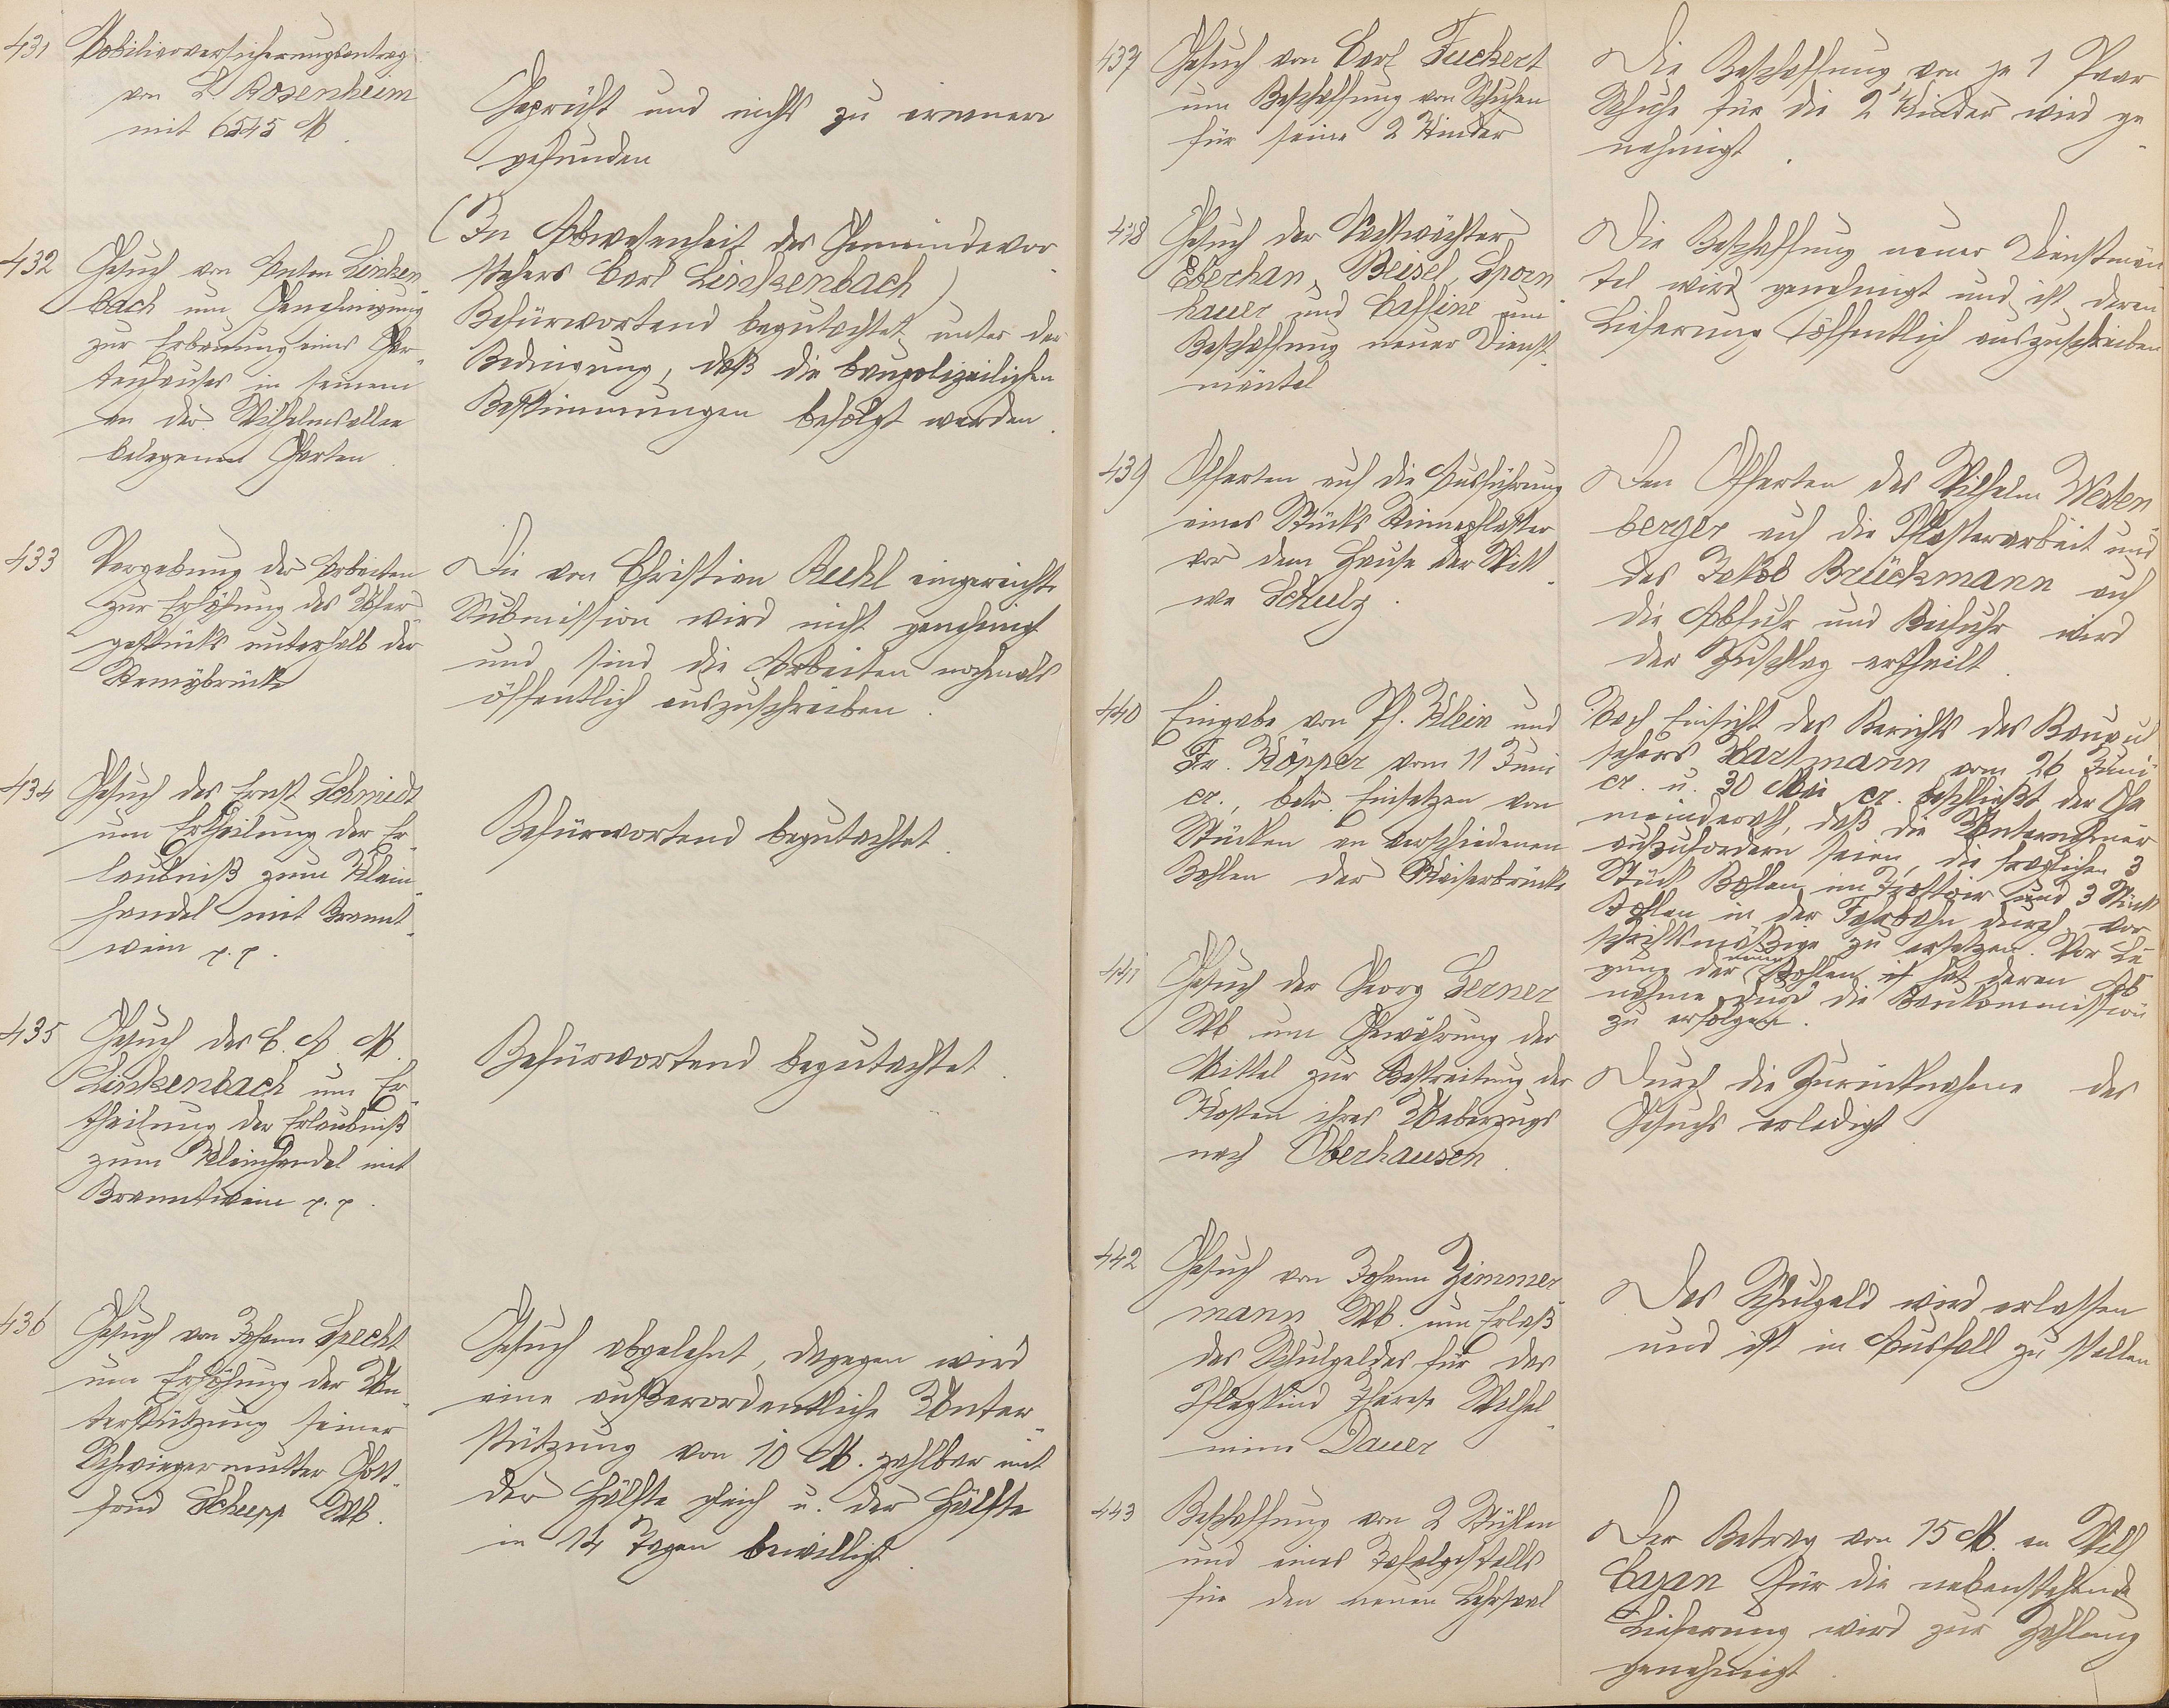 431 Mobiliarversicherungsantrag
von L. Rosenheim
mit 6545 M.
Geprüft und nichts zu erinnern
gefunden
432 Gesuch von Anton Linken-
bach um Genehmigung
zur Erbauung eines Gar-
tenhauses in seinem
an der Wilhelmsallee
belegenen Garten.
(In Abwesenheit des Gemeindevor-
stehers Carl Linkenbach)
Befürwortend begutachtet unter der
Bedingung, daß die baupolizeilichen
Bestimmungen befolgt werden.
433 Vergebung der Arbeiten
zur Erhöhung des Ufer-
gestücks unterhalb der
Remybrücke
Die von Christian Ruhl eingereichte
Submission wird nicht genehmigt
und sind die Arbeiten nochmals
öffentlich auszuschreiben.
434 Gesuch des Ernst Schmidt
um Ertheilung der Er-
laubniß zum Klein-
handel mit Brannt-
wein p.p.
Befürwortend begutachtet.
435 Gesuch des C. A. M.
Linkenbach um Er-
theilung der Erlaubniß
zum Kleinhandel mit
Branntwein p.p.
Befürwortend begutachtet.
436 Gesuch von Johann Specht
um Erhöhung der Un-
terstützung seiner
Schwiegermutter Gott-
fried Schupp Wb.
Gesuch abgelehnt, dagegen wird
eine außerordentliche Unter-
stützung von 10 M. zahlbar mit
der Hälfte gleich u. der Hälfte
in 14 Tagen bewilligt.
437 Gesuch von Carl Fuckert
um Beschaffung von Schuhen
für seine 2 Kinder
Die Beschaffung von je 1 Paar
Schuhe für die 2 Kinder wird ge-
nehmigt.
438 Gesuch der Nachtwächter
Eberhan, Beisel, Sporn-
hauer und Caffine um
Beschaffung neuer Dienst-
mäntel
Die Beschaffung neuer Dienstmän-
tel wird genehmigt und ist deren
Lieferung öffentlich auszuschreiben
439 Offerten auf die Ausführung
eines Stücks Rinnepflaster
vor dem Hause der Witt-
we Schulz.
Den Offerten des Wilhelm Westen-
berger auf die Pflasterarbeit und
des Jakob Brückmann auf
die Abfuhr und Beifuhr wird
der Zuschlag ertheilt.
440 Eingabe von Ph. Klein und
Fr. Köpper vom 11 Juni
cr., betr. Einsetzen von
Stücken an verschiedenen
Bohlen der Kaiserbrücke
Nach Einsicht des Berichts des Bauauf-
sehers Hartmann vom 26 Juni
cr. u. 30 Mai cr. beschließt der Ge-
meinderath, daß die Unternehmer
aufzufordern seien, die fraglichen 3
Stück Bohlen im Trottoir und 3 Stück
Bohlen in der Fahrbahn durch vor-
schriftsmäßige zu ersetzen. Vor Le-
gung der neuen Bohlen hat deren Ab-
nahme durch die Baukommission
zu erfolgen.
441 Gesuch der Georg Gerner
Wb. um Gewährung der
Mittel zur Bestreitung der
Kosten ihres Ueberzugs
nach Oberhausen.
Durch die Zurücknahme des
Gesuchs erledigt
442 Gesuch von Johann Zimmer-
mann Wb. um Erlaß
des Schulgeldes für das
Pflegkind Therese Wilhel-
mine Dauer
Das Schulgeld wird erlassen
und ist in Ausfall zu stellen
443 Beschaffung von 2 Stühlen
und eines Tafelgestells
für den neuen Lehrsaal
Der Betrag von 15 M. an Wilh.
Cajan für die nebenstehende
Lieferung wird zur Zahlung
genehmigt.